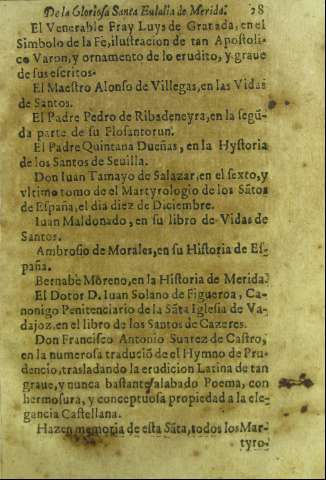 De la Gloriosa Santa Eulalia de Merida. 28
El Venerable Fray Luys de Granada, en el
Simbolo de la Fè, ilustracion de tan Apostoli-
co Varon, y ornamento de lo erudito, y graue
de sus escritos.
El Maestro Alonso de Villegas, en las Vidas
de Santos.
El Padre Pedro de Ribadeneyra, en la segũ-
da parte de su Flosantorun.
El Padre Quintana Dueñas, en la Hystoria
de los Santos de Seuilla.
Don Iuan Tamayo de Salazar, en el sexto, y
vltimo tomo de el Martyrologio de los Sãtos
de España, el dia diez de Diciembre.
Iuan Maldonado, en su libro de Vidas de
Santos.
Ambrosio de Morales, en su Historia de Es-
paña.
Bernabè Moreno, en la Historia de Merida.
El Dotor D. Iuan Solano de Figueroa, Ca-
nonigo Penitenciario de la Sãta Iglesia de Va-
dajoz, en el libro de los Santos de Cazeres.
Don Francisco Antonio Suarez de Castro,
en la numerosa traduciõ de el Hymno de Pru-
dencio, trasladando la erudicion Latina de tan
graue, y nunca bastante alabado Poema, con
hermosura, y conceptuosa propiedad a la ele-
gancia Castellana.
Hazen memoria de esta Sãta, todos los Mar-
tyro-